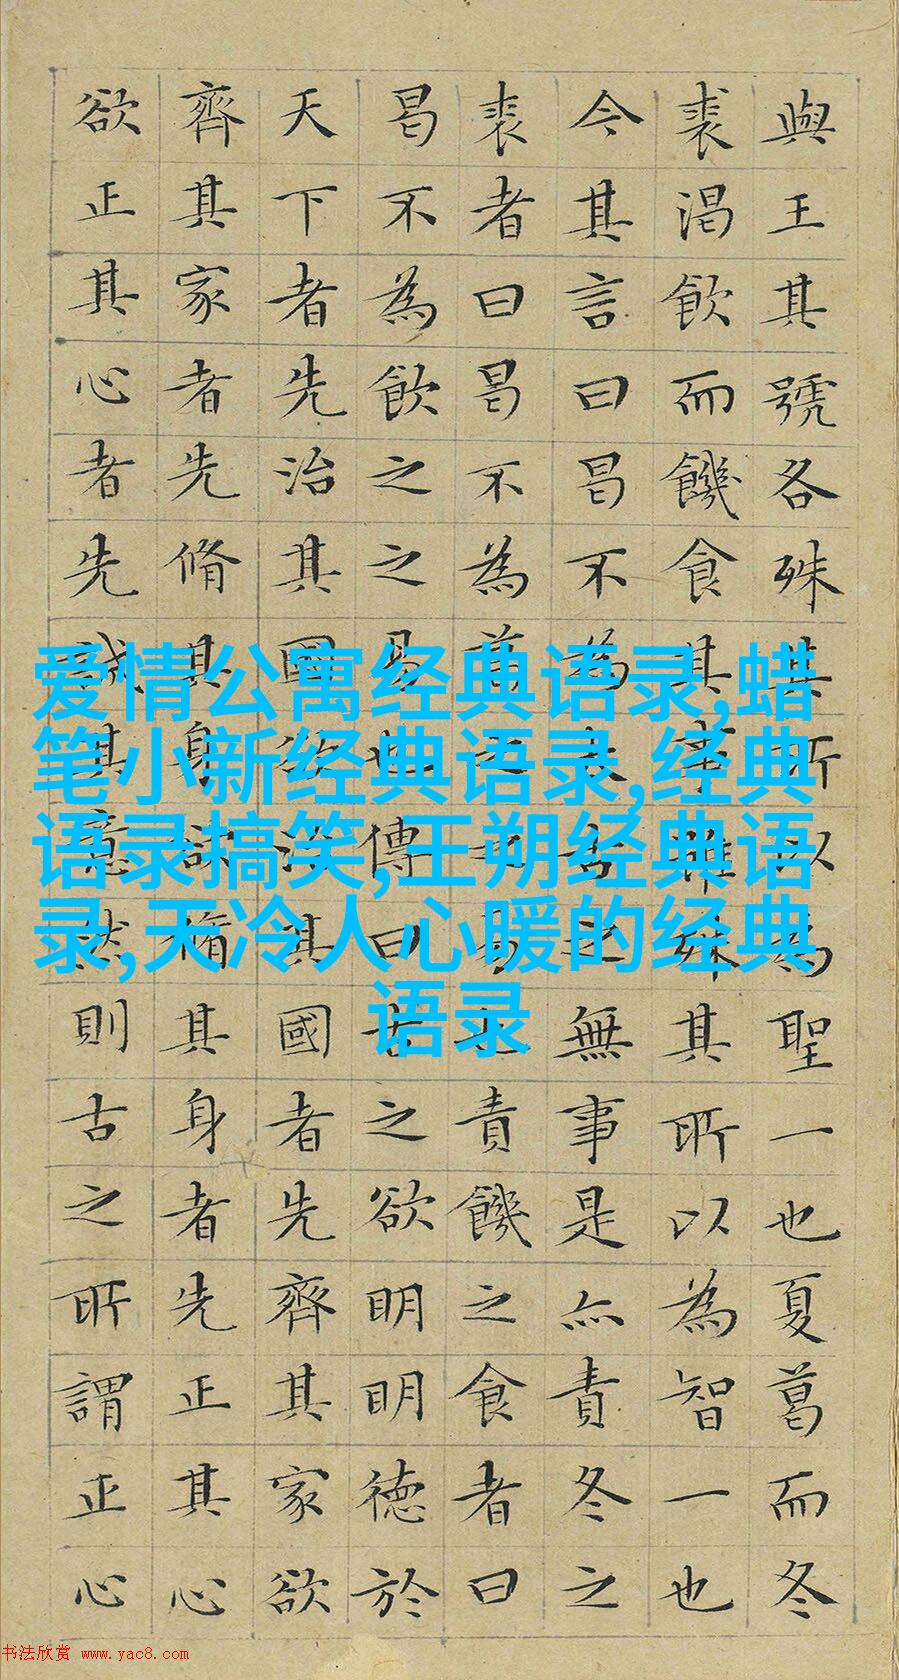 與王其號各殊其所以為聖一也夏葛而冬
裘渴飲而饑食其事雖殊其所以為智一也
今其言曰曷不為太古之無事是亦責冬之
裘者曰曷不為葛之之易也責饑之食者曰
曷不為飲之之易也傳曰古之欲明明德於
天下者先治其國欲治其國者先齊其家欲
齊其家者先脩其身欲脩其身者先正其心
欲正其心者先誠其意然則古之所謂正心
爱情公寓经典语录,蜡
笔小新经典语录,经典
语录搞笑,王朔经典语
录,天冷人心暖的经典
语录
书法欣赏 www.yac8.com